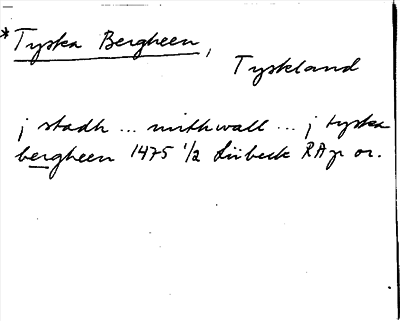 *Tyska Bergheen,
Tyskland
j stadh ... mithwall ... j tyska
bergheen 1475 1/2 Lübeck RAp or.